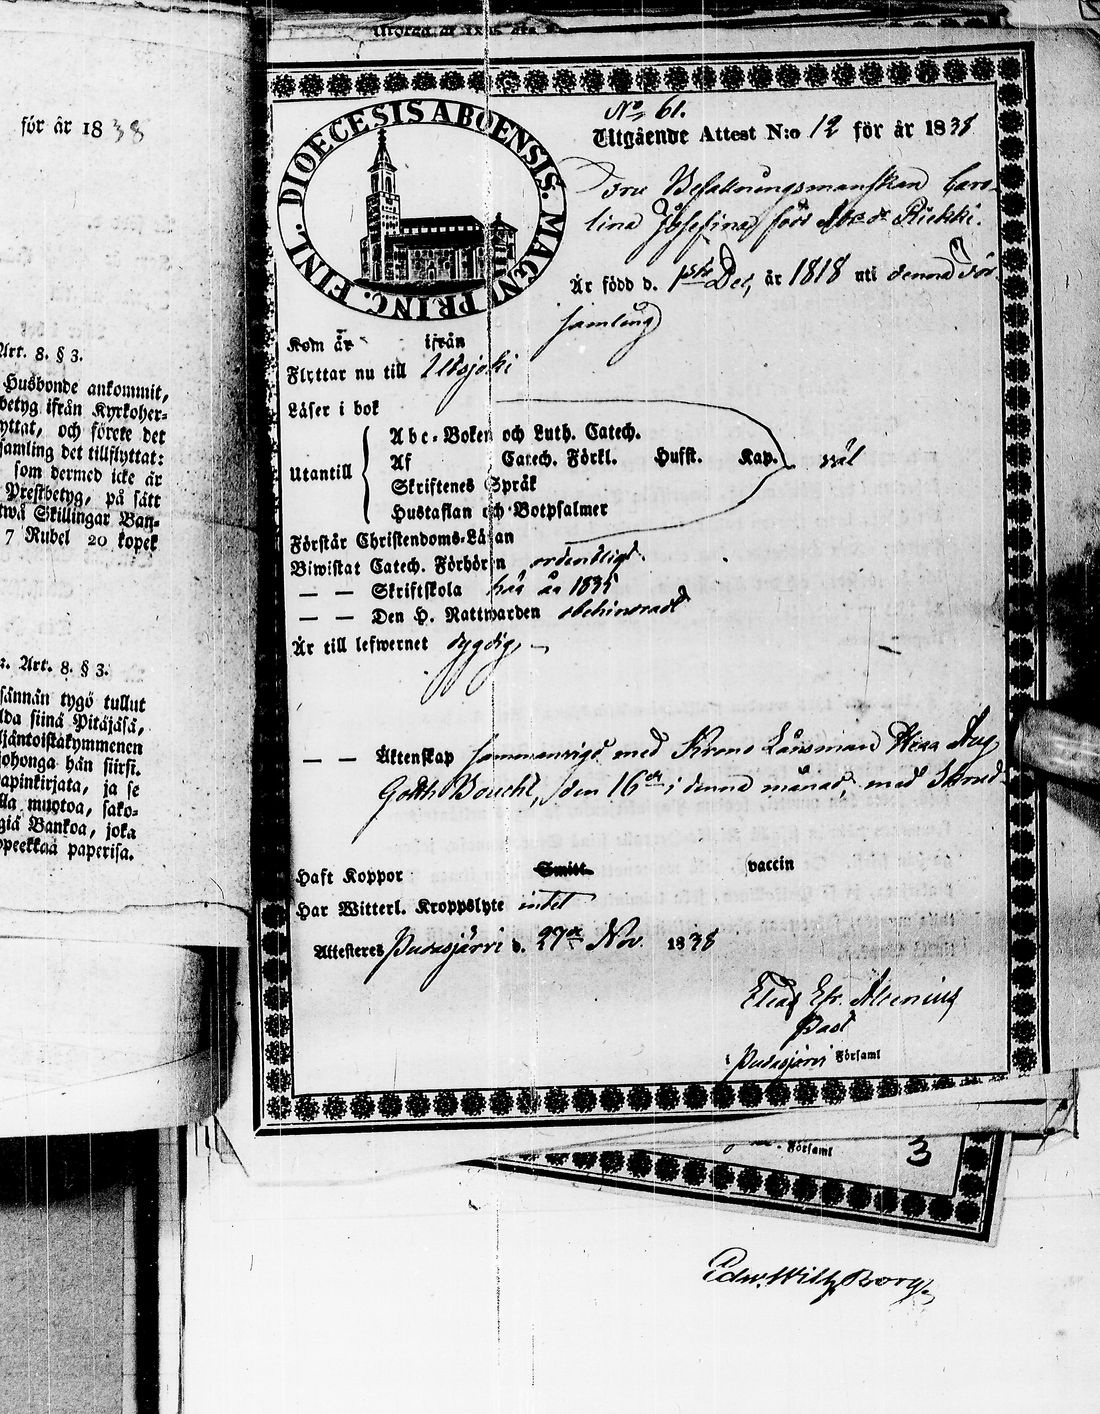 för år 1838
Art. 8. § 3.
Husbonde ankommit,
betyg ifrån Kyrkoher-
yttat, och förete det
samling det tillflyttat:
som dermed icke är
Prestbetyg, på sätt
twå Skillingar Ban-
7 Rubel 20 kopek
Art. 8. § 3.
sännän tygö tullut
lda siinä Pitäjäsä,
ljäntoistakymmenen
johonga hän siirsi.
apinkirjata, ja se
lla muotoa, sako-
giä Bankoa, joka
opeekkaa paperisa.
DIOECESIS ABOENSIS. MAGNI PRINC. FINL.
No 61.
Utgående Attest N:o 12 för år 1838
Befallningsmanskan Caro-
lina Josefina född Riekki.
Är född d. 1sta Dec, år 1818 uti denna För-
samling
Kom år ifrån
Flyttar nu till Utsjoki
Läser i bok
Utantill
Abc-Boken och Luth. Catech.
Af Catech. Förkl. Hufst. Kap. väl
Skriftenes Språk
Hustaflan och Botpsalmer
Förstår Christendoms-Läran
Biwistat Catech. Förhören ordentligt
— — Skriftskola här år 1835
— — Den H. Nattwarden obehindradt
Är till lefwernet dygdig,
— — Äktenskap sammanvigd med Krono Länsman Aug
Gotth Boucht, den 16de i denna månad, med
Haft Koppor Smitt. vaccin
Har Witterl. Kroppslyte intet
Attesteres Pudasjärvi d. 27de Nov. 1838
Elias Efr. Alcenius
Past
i Pudasjärvi Församl
Församl
3
Edw. Wilh. Borg.